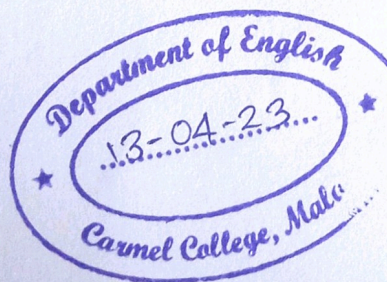 Department of English
13-04-23
Carmel College,